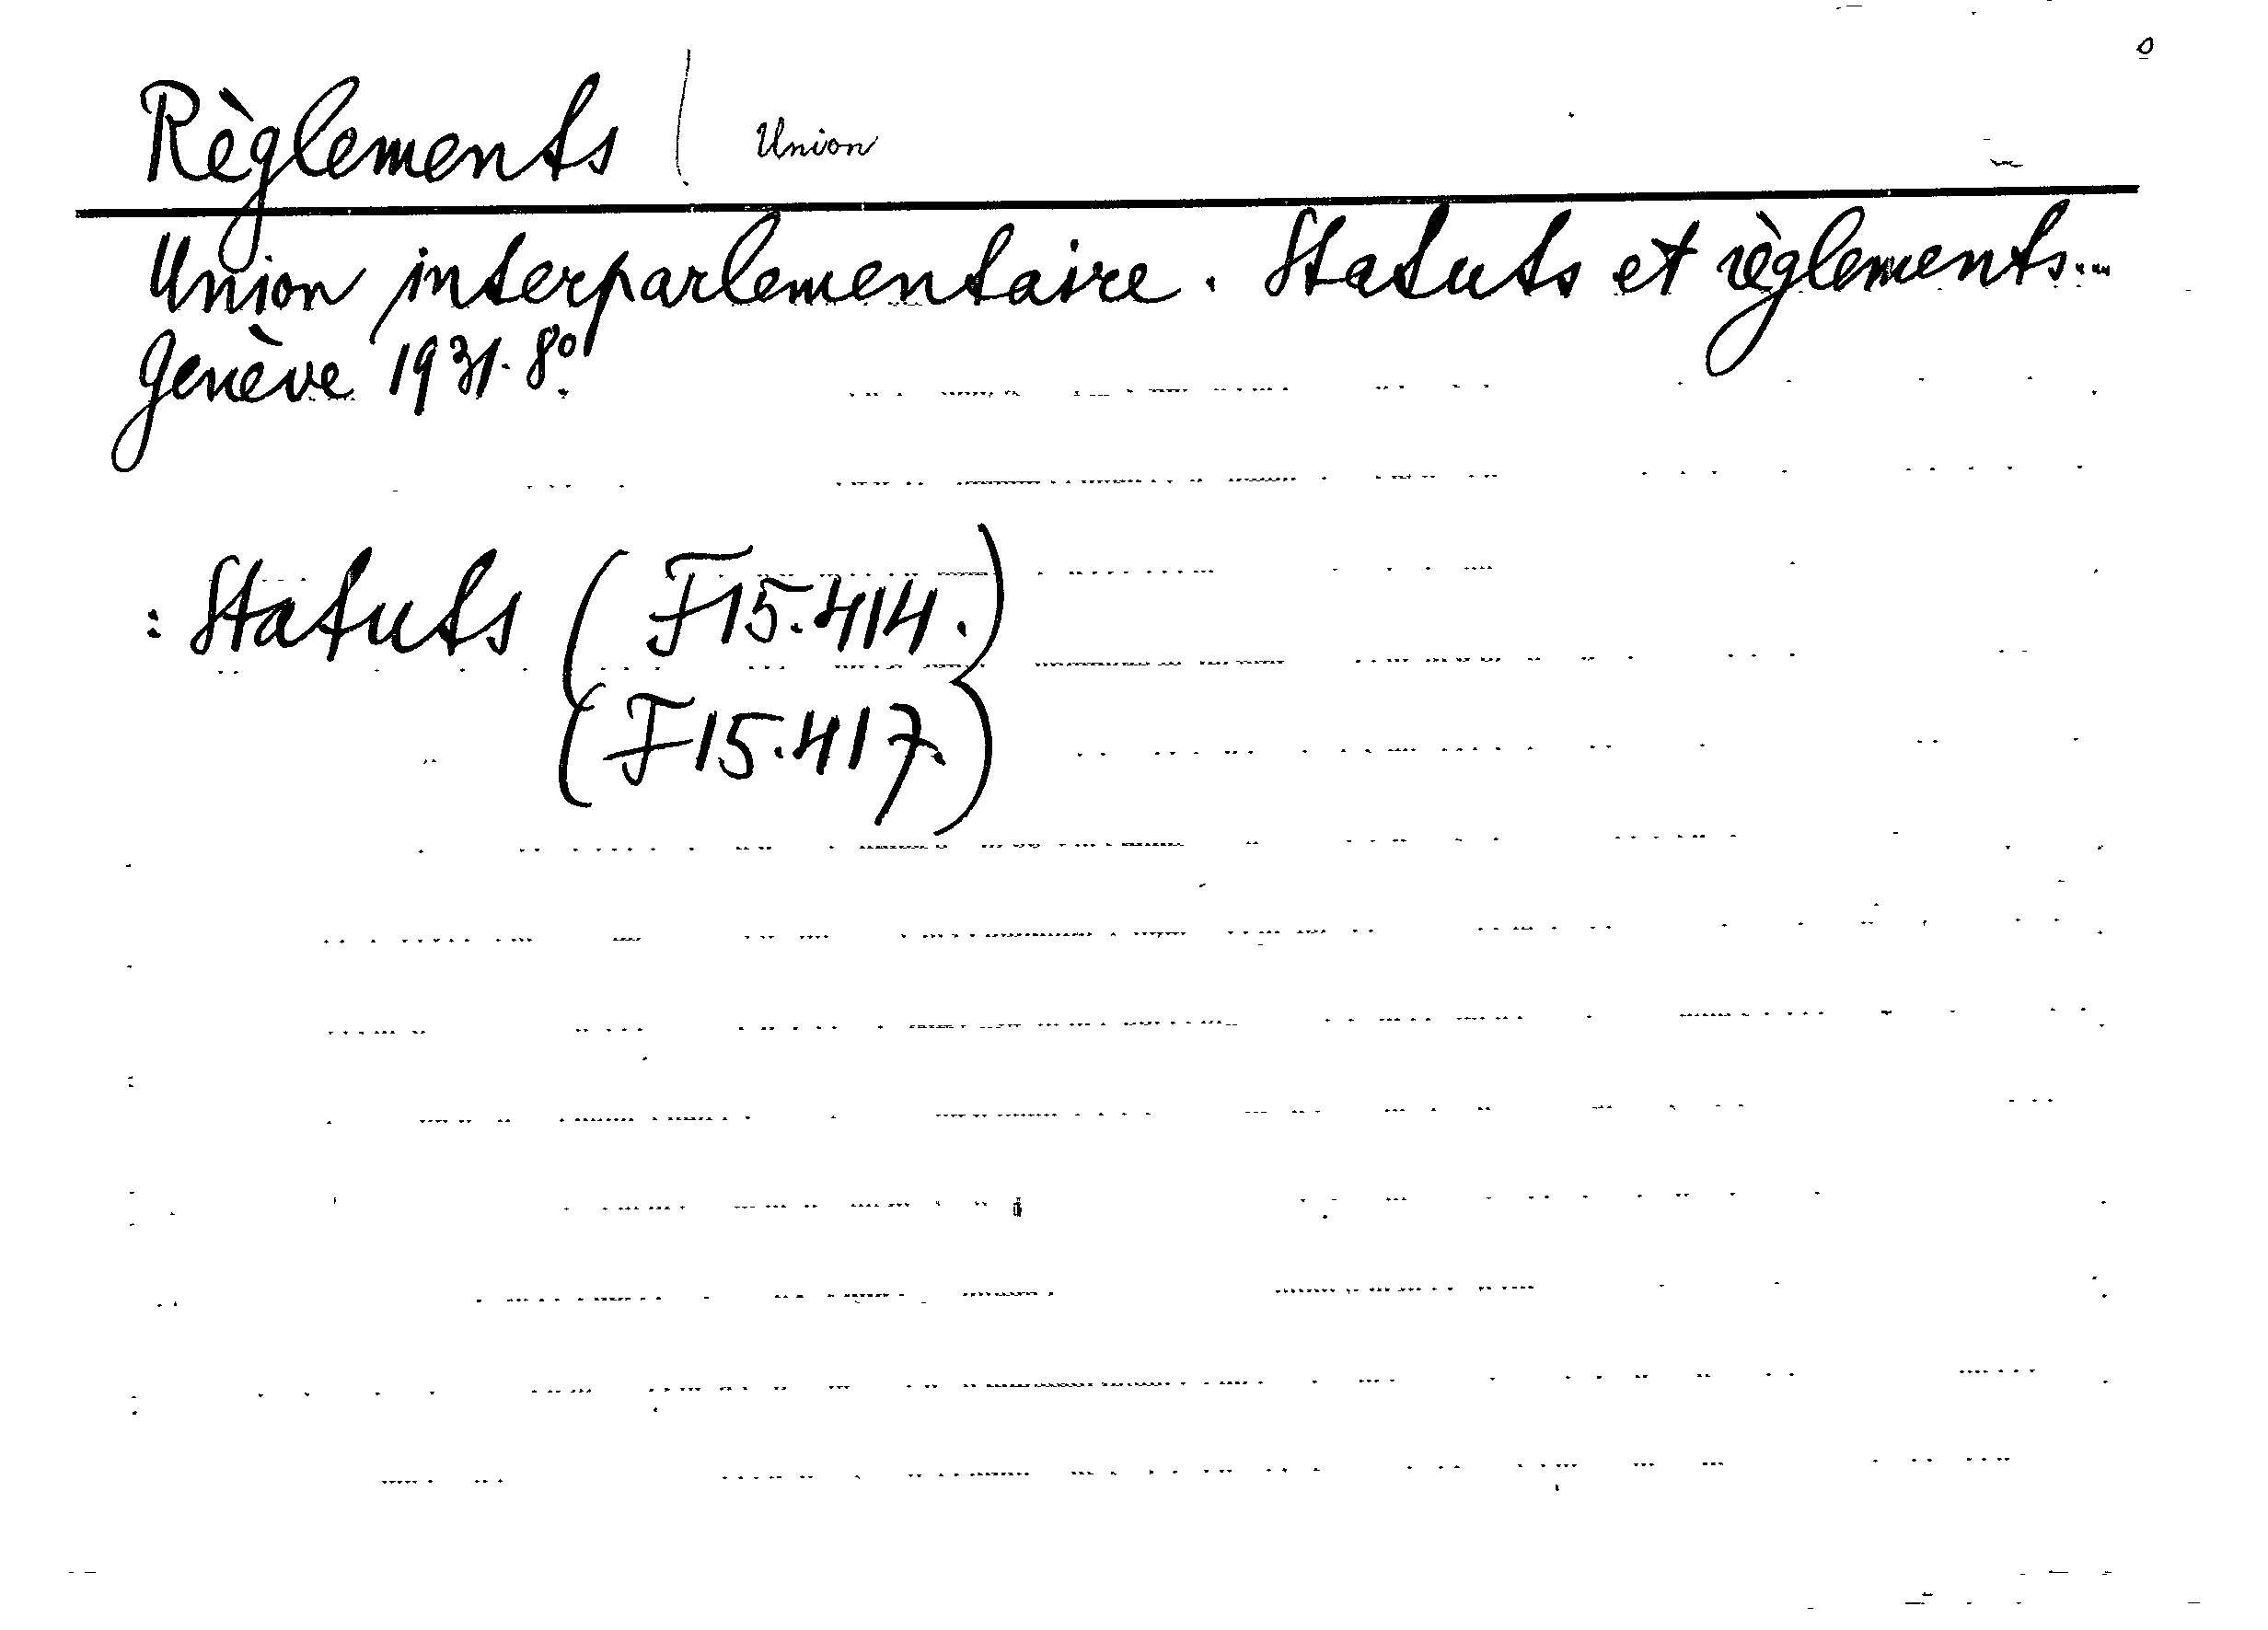 Règlements | Union
Union interparlementaire. Statuts et règlements...
Genève 1931. 8º.
: Statuts (F15.414.)
(F15.417.)